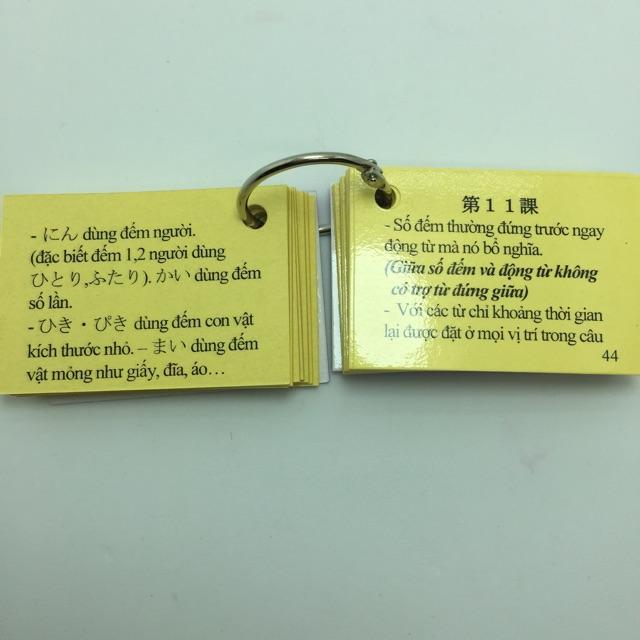 - にん dùng đếm người.
(đặc biết đếm 1,2 người dùng
ひとり,ふたり). かい dùng đếm
số lần.
- ひき・ぴき dùng đếm con vật
kích thước nhỏ. – まい dùng đếm
vật mỏng như giấy, đĩa, áo…
第１１課
- Số đếm thường đứng trước ngay
động từ mà nó bổ nghĩa.
(Giữa số đếm và động từ không
có trợ từ đứng giữa)
- Với các từ chỉ khoảng thời gian
lại được đặt ở mọi vị trí trong câu
44